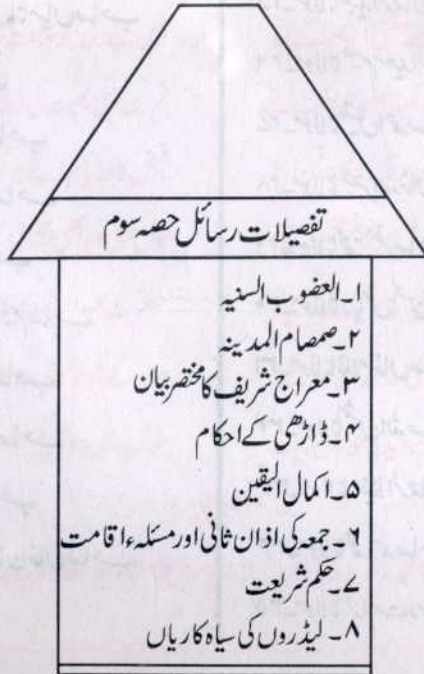 تفصیلات رسائل حصہ سوم
۱۔العضوب السنیہ
۲۔صمصام المدینہ
۳۔معراج شریف کا مختصر بیان
۴۔ڈاڑھی کے احکام
۵۔اکمال الیقین
۶۔جمعہ کی اذان ثانی اور مسئلہء اقامت
۷۔حکم شریعت
۸۔ لیڈروں کی سیاہ کاریاں